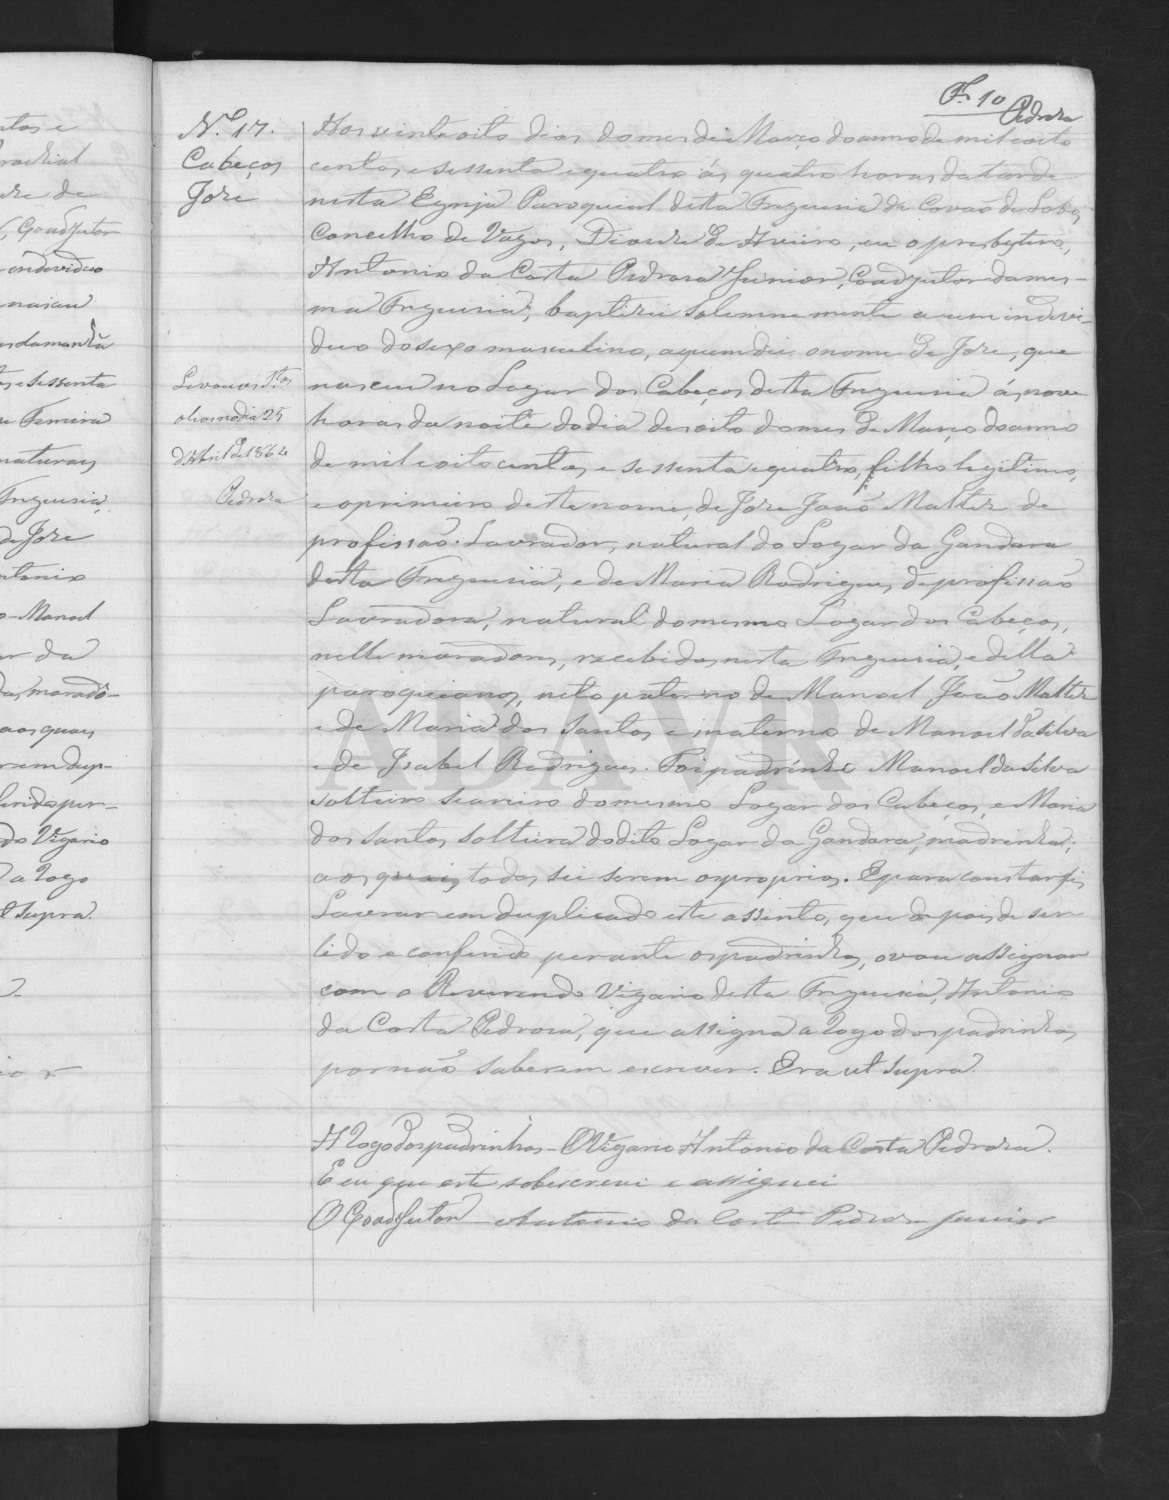 Fl. 10 Pedroza
N.º 17.
Cabeços
Joze
Aos vinte oito dias do mes de Março do anno de mil e oito
centos e sessenta e quatro ás quatro horas da tarde
nesta Egreja Paroquial desta Freguesia de Covaõ do Lobo,
Concelho de Vagos, Diocese de Aveiro, eu o presbytero,
Antonio da Costa Pedroza Junior, Coadjutor da mes-
ma Freguesia, baptizei solemnemente a um indevi-
duo do sexo masculino, a quem dei o nome de Joze, que
nasceu no Logar dos Cabeços desta Freguesia ás nove
horas da noite do dia desoito do mes de Março do anno
de mil e oito centos e sessenta e quatro, filho legitimo,
e o primeiro deste nome, de Joze Joaõ Malta de
profissaõ Lavrador, natural do Logar da Gandara
desta Freguesia, e de Maria Rodrigues, de profissaõ
Lavradora, natural do mesmo Logar dos Cabeços,
nelle moradores, recebidos nesta Freguesia, e della
paroquianos, neto paterno de Manoel Joaõ Malta
e de Maria dos Santos e materno de Manoel da Silva
e de Izabel Rodrigues. Foi padrinho Manoel da Silva
solteiro seareiro do mesmo Logar dos Cabeços, e Maria
dos Santos solteira do dito Logar da Gandara, madrinha;
aos quais todos sei serem os proprios. E para constar fis
Lavrar em duplicado este assento, que depois de ser
lido e conferido perante os padrinhos, o vou assignar
com o Reverendo Vigario desta Freguesia, Antonio
da Costa Pedroza, que assigna a Rogo dos padrinhos
por naõ saberem escrever. Era ut supra.
A Rogo dos padrinhos - O Vigario Antonio da Costa Pedroza.
E eu que este sobescrevi e assignei
O Coadjutor Antonio da Costa Pedroza Junior
Levou os S.tos
olhos no dia 25
d'Abril de 1864
Pedroza
ADAVR